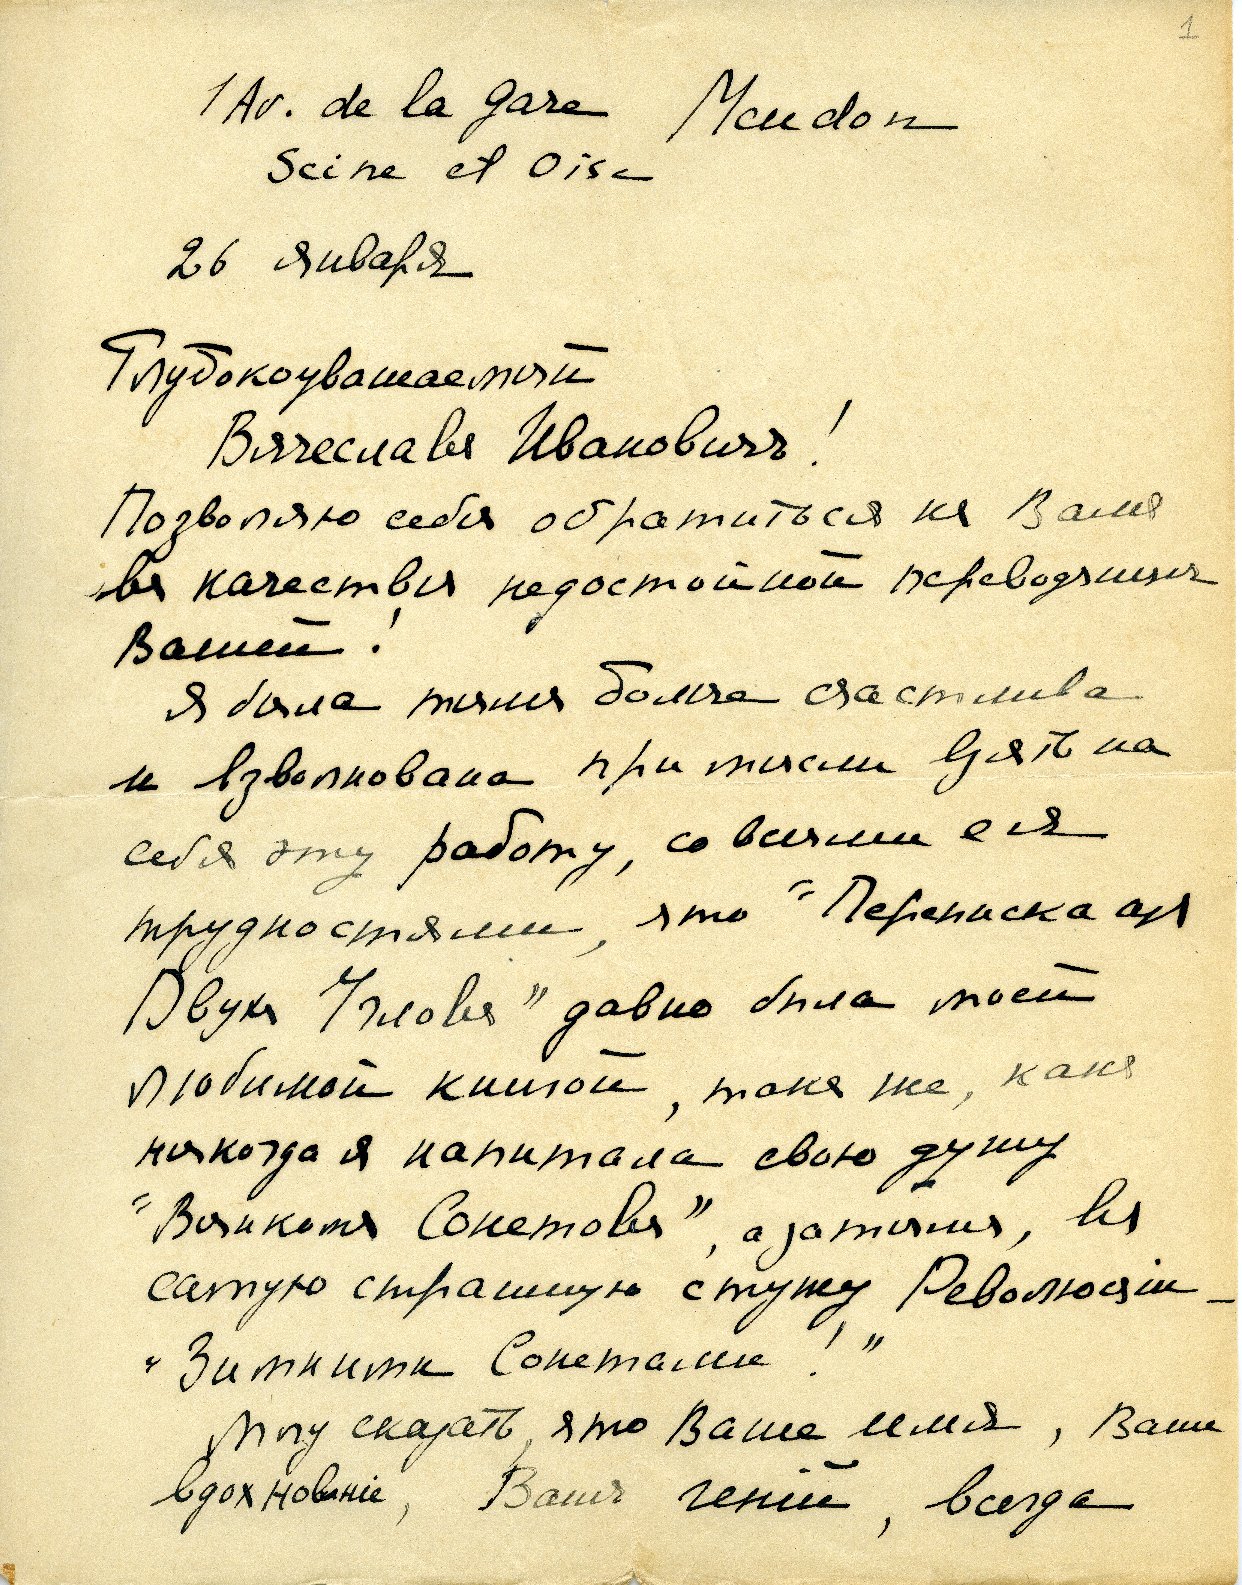 1
1 Av. de la Gare Meudon
Seine et Oise
26 января
Глубокоуважаемый
Вячеславъ Ивановичъ!
Позволяю себѣ обратиться къ Вамъ
въ качествѣ недостойной переводчицы
Вашей!
Я была тѣмъ болѣе счастлива
и взволнована при мысли взять на
себя эту работу, со всѣми ея
трудностями, что "Переписка изъ
Двухъ Угловъ" давно была моей
любимой книгой, такъ же, какъ
нѣкогда я напитала свою душу
"Вѣнкомъ Сонетовъ", а затѣмъ, въ
самую страшную стужу Революціи –
"Зимними Сонетами!"
Могу сказать, что Ваше имя, Ваше
вдохновеніе, Вашъ геній, всегда